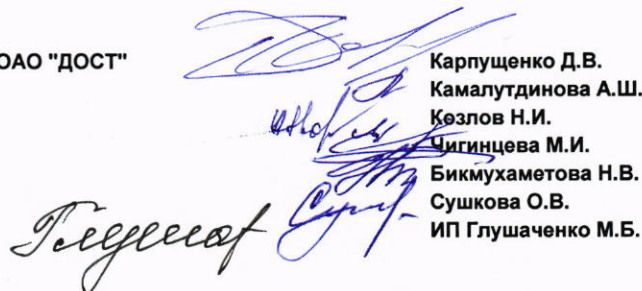 ОАО "ДОСТ"
Карпущенко Д.В.
Камалутдинова А.Ш.
Козлов Н.И.
Чигинцева М.И.
Бикмухаметова Н.В.
Сушкова О.В.
ИП Глушаченко М.Б.